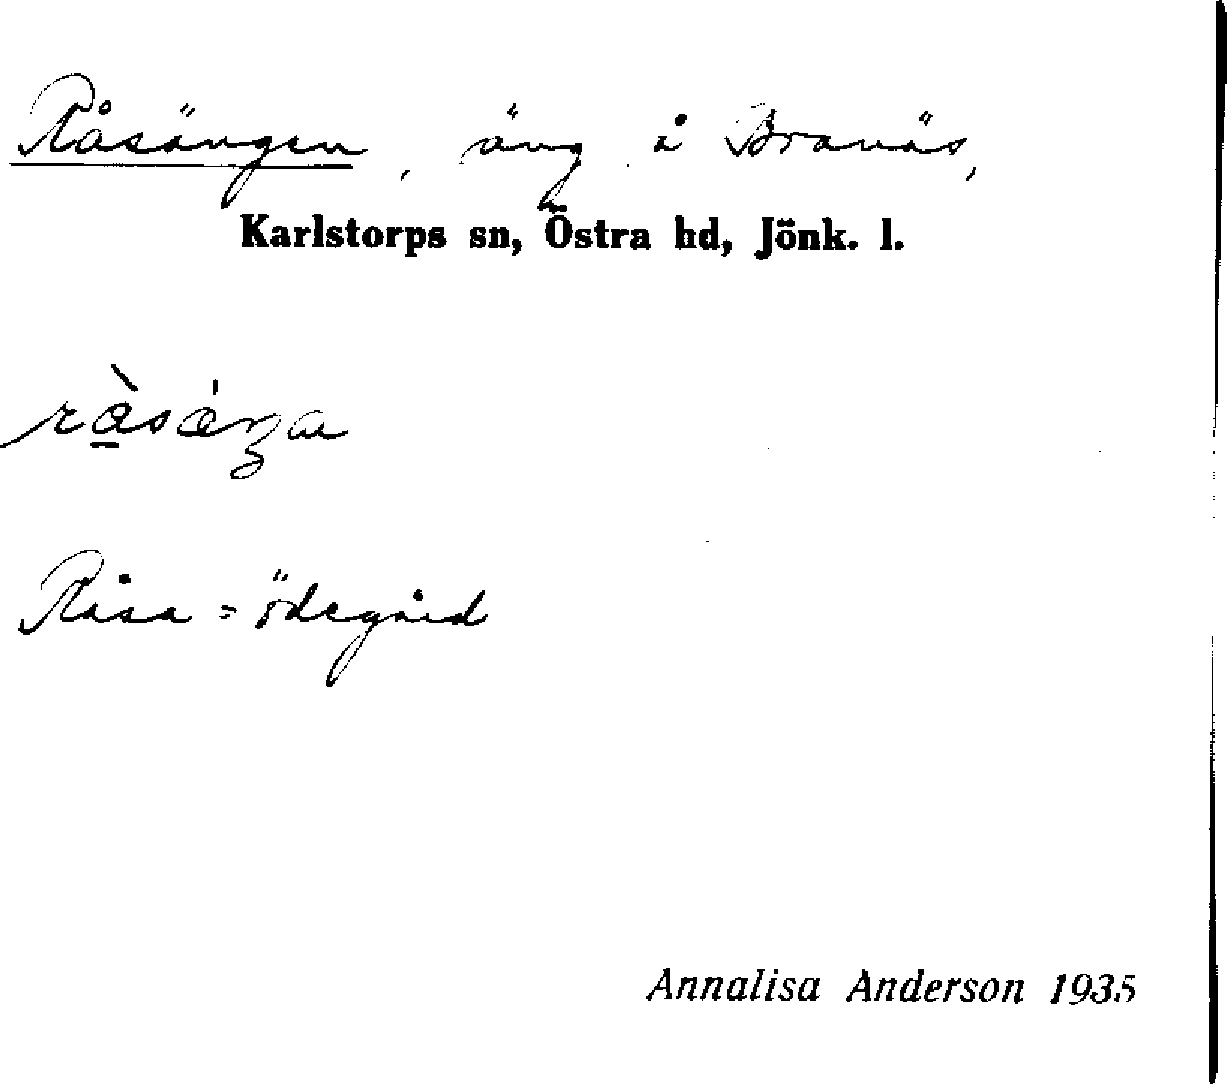 Råsängen, äng å Branäs,
Karlstorps sn, Östra hd, Jönk. l.
Råsa = ödegård
Annalisa Anderson 1935